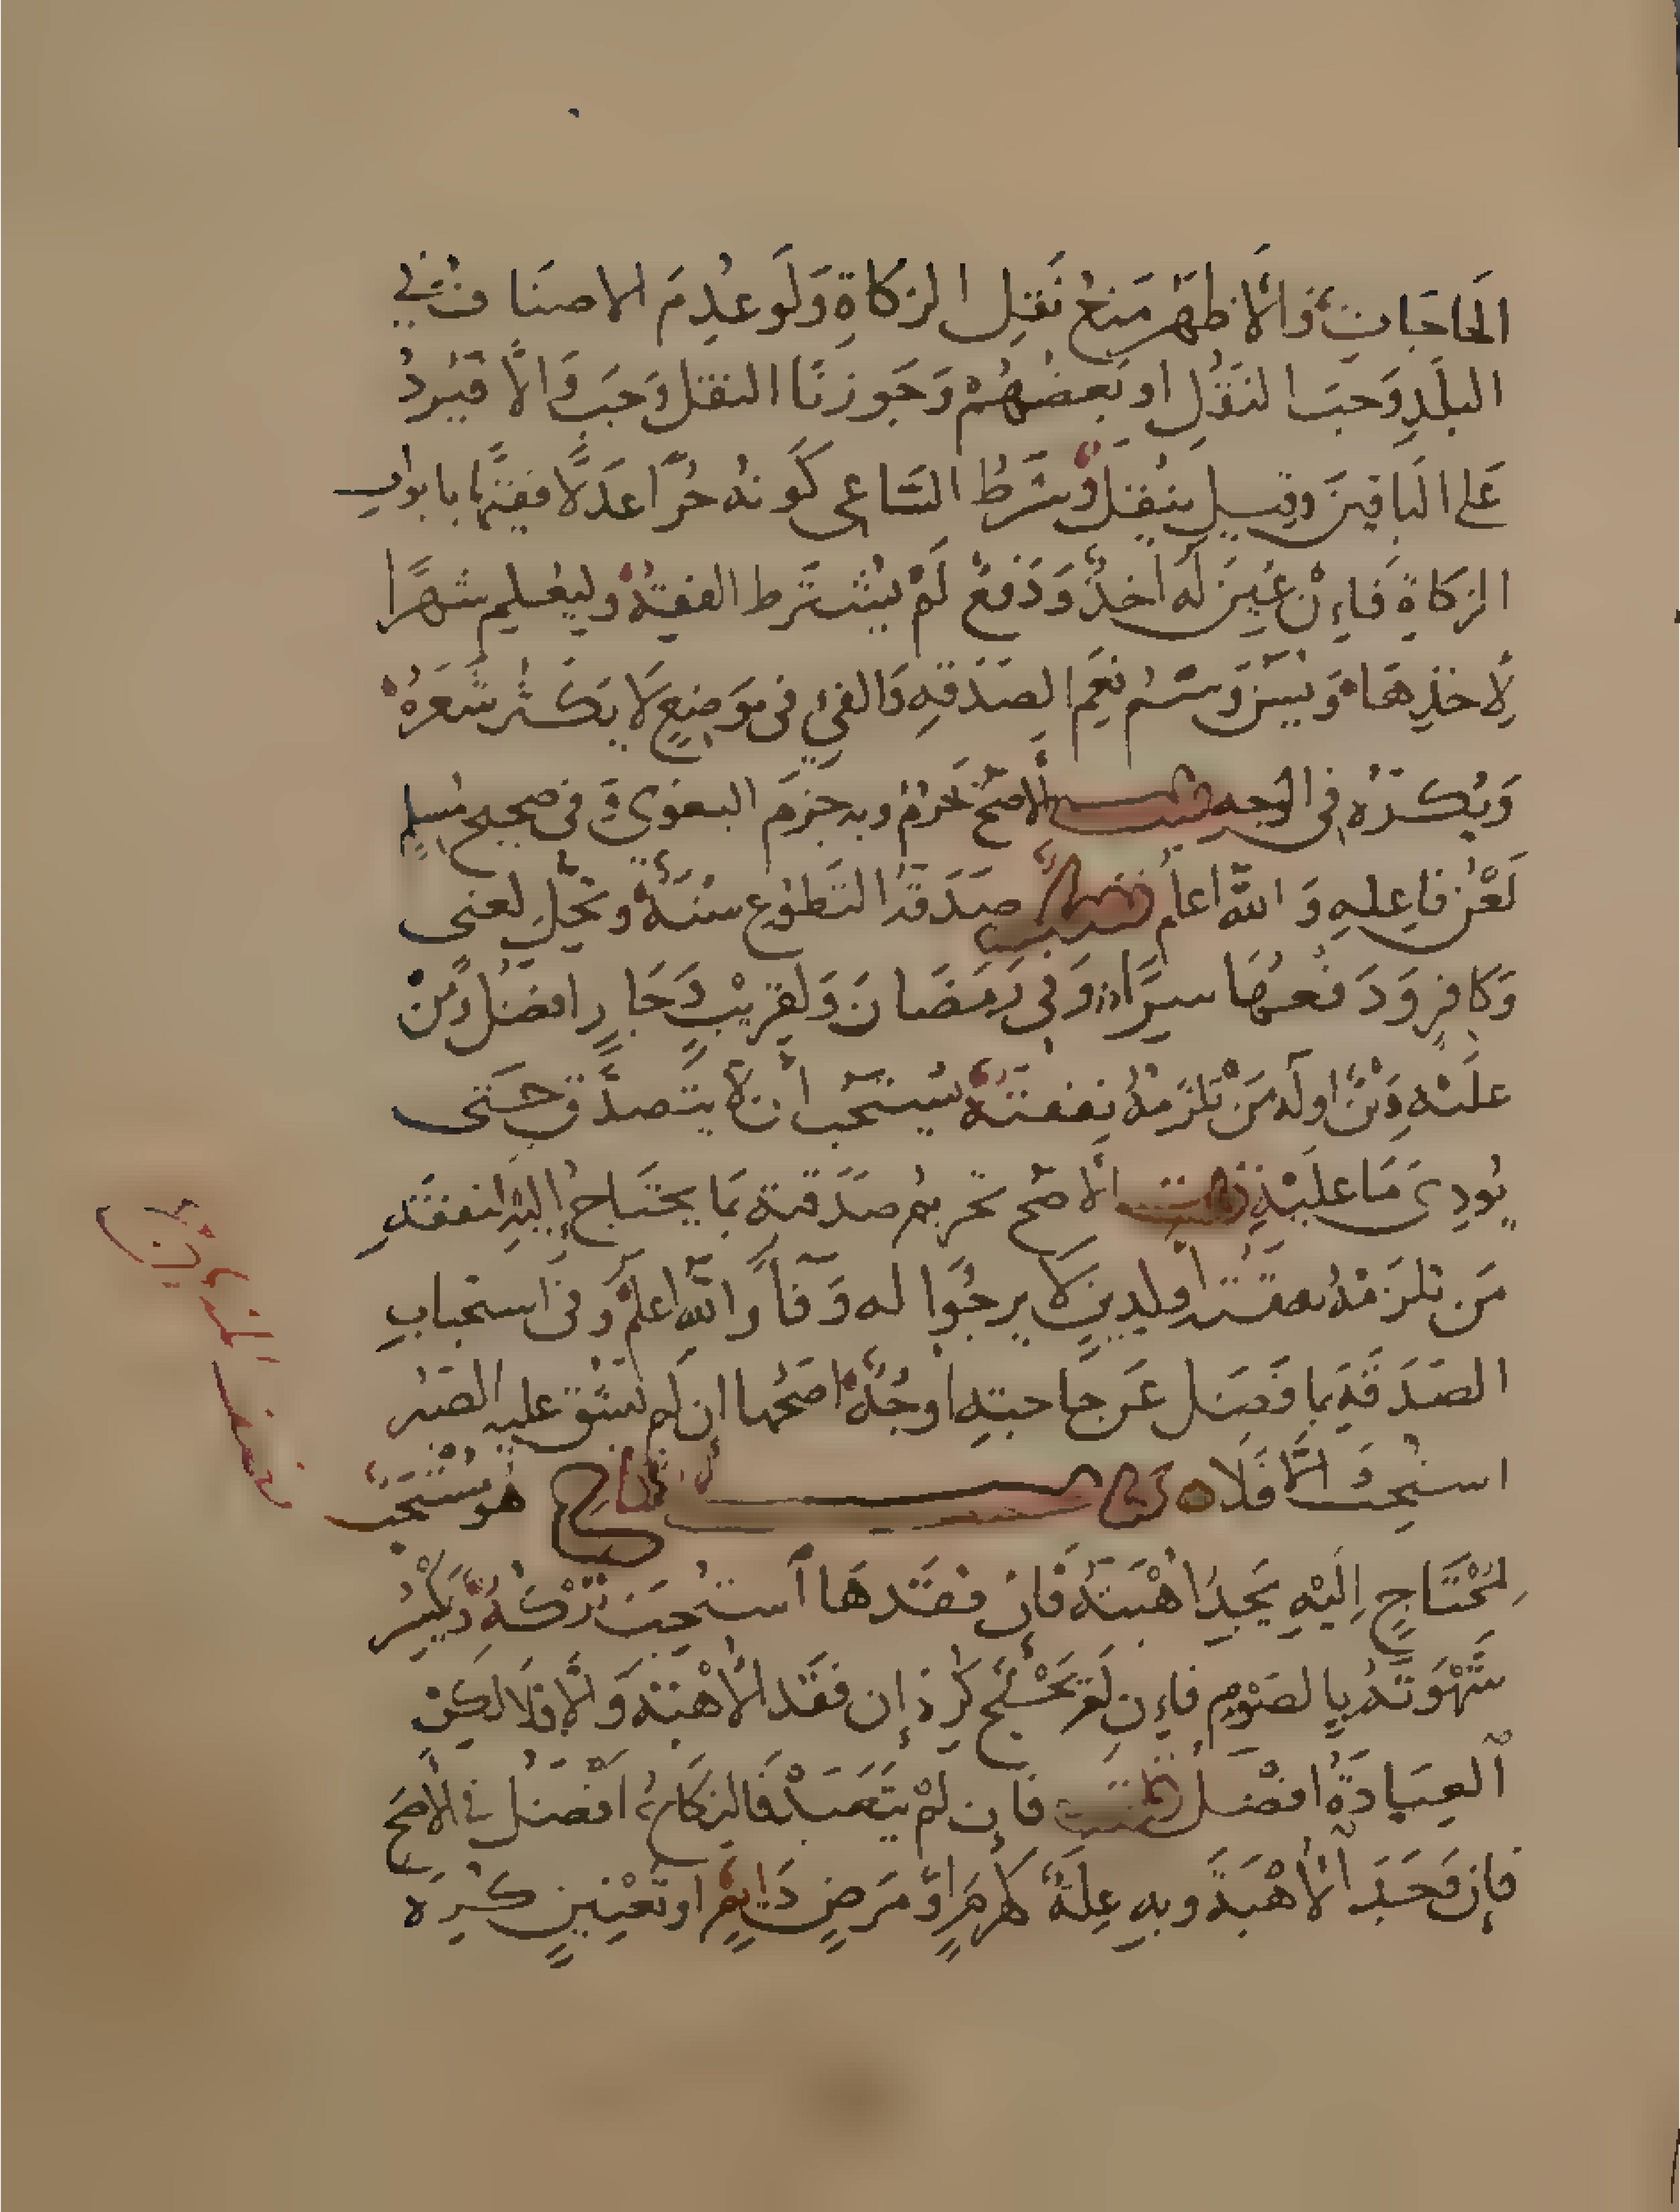 الحَاجَاتِ وَالْأَظْهَرُ مَنْعُ نَقْلِ الزَكَاةِ وَلَو عُدِمَ الاصنَافُ في
البلَدِ وَجَبَ النَقْلُ او بَعضُهُمْ وَجَوزنَا النقل وَجَبَ وَالَّا فَيُردُّ
عَلى البَاقِينَ وقيل يُنقل وشَرْطُ السَاعى كَونه حُرًّا عَدْلًا فقيهًا بابواب
الزكَاةِ فَاءِنْ عُيِّنَ لَه اخذٌ وَدَفعٌ لَمْ يُشتَرط الفقهُ وليُعلِم شهرًا
لِاخذِهَا وَيُسَنّ وَسْمُ نَعَمِ الصَدَقهِ وَالفئِ فى مَوضِعٍ لَا يَكثُر شَعَرُهُ
وَيُكرَهُ فى الوَجه قلت الَاصَحُّ يَحرُمُ وبه جزمَ البغوى وَفى صحيح مُسلِم
لَعْنُ فاعِلهِ وَاللّه اعلم فصل صَدَقَةُ التَطوُّع سُنَّةٌ وتحِلّ لغنى
وَكافِرٍ وَدَفعُهَا سِرًّا وَفى رَمَضَانَ وَلقَرِيْبٍ وَجَارٍ افضَلُ وَمنْ
علَيْهِ دَيْنٌ اولَه مَنْ تَلزَمُهُ نفقتَهُ يُستَحَب أنْ لَا يتَصدَّق حَتى
يُودِىَ مَا عليْهِ قلت الاصَحُّ تحريمُ صَدَقتهِ بمَا يحتَاجُ إليْهِ لنفقَةِ
مَن تلزَمُهُ نفقتُه اولدينٍ لَا يرجُوا له وَفاً وَاللّه اعلمُ وَفى استحبابِ
الصَدَقَةِ بما فَضَل عَن حَاجتِهِ اوجُهٌ اصَحُّهما ان لم يَشُقّ عليه الصَبْر
استُحِبَّ وَالَّا فَلَا ه كتاب النكاح هُو مُسْتَحَبٌّ
لِمُحْتَاجٍ إلَيْهِ يَجِدُ اُهْبَتَهُ فَإن فقَدهَا اُستُحِبَّ تَرْكُهُ وَيَكْسِرُ
شَهْوَتَهُ بِالصَوْمِ فاءِن لَمْ يَحْتَجْ كُرِهَ إن فَقَدَ الأُهْبَةَ وَالّا فلَا لَكِنْ
اَلعِبَادَةُ افْضَلُ قلت فَإن لَمْ يَتَعَبدْ فَالنِكَاحُ افْضَلُ فى الأَصَحِّ
فإن وَجَدَ الأُهْبَةَ وبِهِ عِلةٌ كهَرَمٍ اوْ مَرَضٍ دَايِمٍ او تَعْنِينٍ كُرِهَ